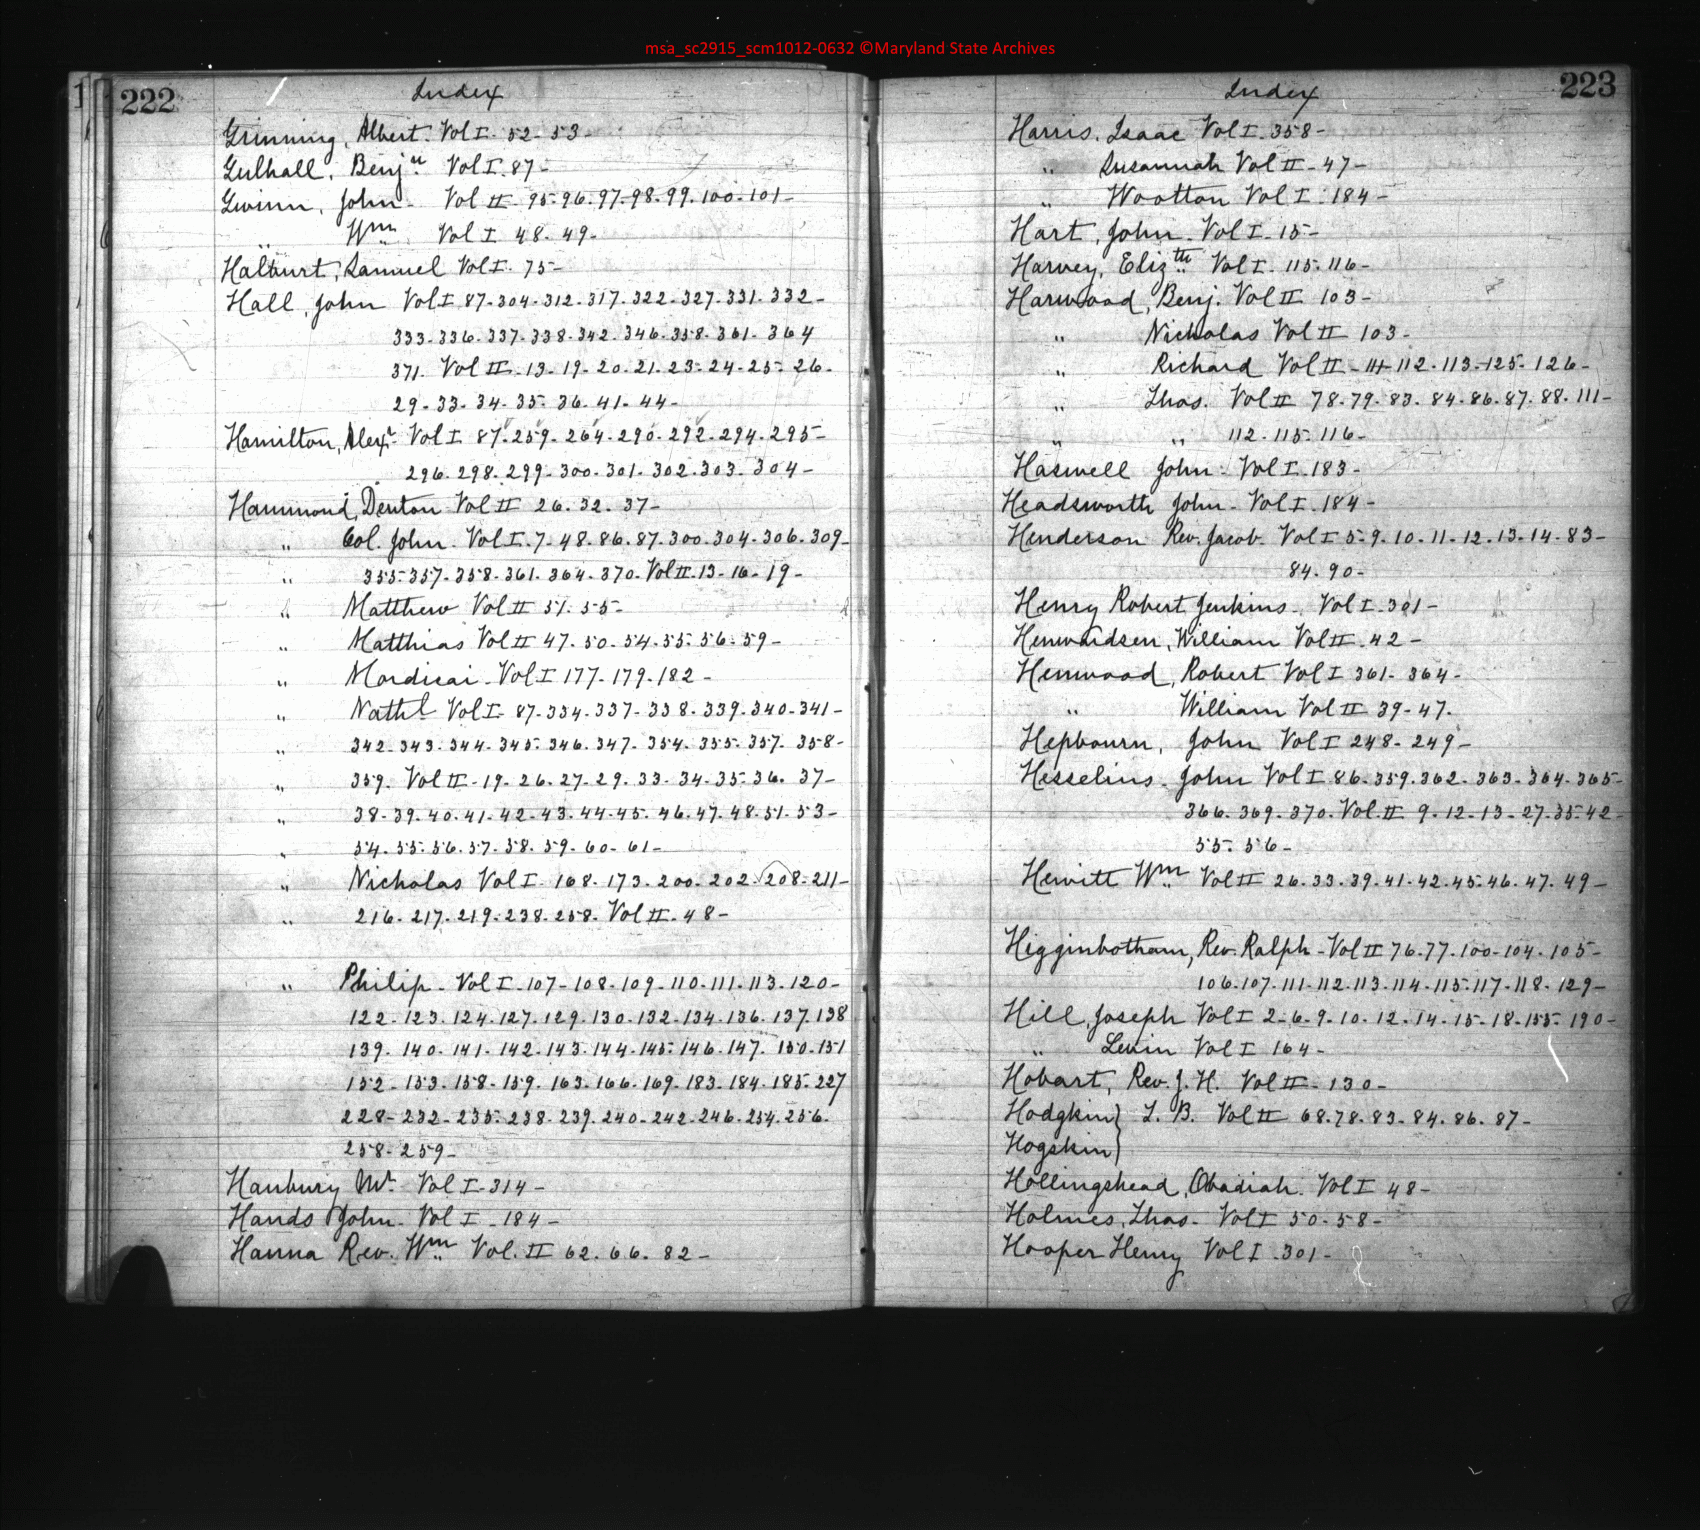 msa_sc2915_scm1012-0632 ©Maryland State Archives
222
Index
Grinning, Albert. Vol I. 52-53-
Gulhall, Benjn Vol I. 87-
Gwinn, John- Vol II 95-96-97-98-99-100-101-
Wm Vol I 48-49-
Halburt, Samuel Vol I. 75-
Hall, John Vol I 87-304-312-317-322-327-331-332-
333-336-337-338-342-346-358-361-364
371. Vol II-13-19-20-21-23-24-25-26-
29-33-34-35-36-41-44-
Hamilton, Alexr Vol I 87-259-264-290-292-294-295-
296-298-299-300-301-302-303-304-
Hammond, Denton Vol II 26.32.37-
" Col. John- Vol I.7-48-86-87-300-304-306-309-
" 355-357-358-361-364-370-Vol II-13-16-19-
Matthew Vol II 51.55-
" Matthias Vol II 47-50-54-55-56-59-
" Mordicai-Vol I 177-179-182-
" Nathl Vol I-87-334-337-338-339-340-341-
" 342-343-344-345-346-347-354-355-357-358-
" 359. Vol II-19-26-27-29-33-34-35-36-37-
" 38-39-40-41-42-43-44-45-46-47-48-51-53-
" 54-55-56-57-58-59-60-61-
" Nicholas Vol I-168-173-200-202-208-211-
" 216-217-219-238-258-Vol II-48-
" Philip-Vol I-107-108-109-110-111-113-120-
122-123-124-127-129-130-132-134-136-137-138
139-140-141-142-143-144-145-146-147-150-151
152-153-158-159-163-166-169-183-184-185-227
228-232-235-238-239-240-242-246-254-256-
258-259-
Hanbury Mr. Vol I-314-
Hands John- Vol I-184-
Hanna Rev. Wm Vol. II 62.66.82-
223
Index
Harris, Isaac Vol I-358-
" Susannah Vol II-47-
" Wootton Vol I. 184-
Hart, John Vol I-15-
Harvey, Elizth Vol I. 115.116-
Harwood, Benj. Vol II 103-
" Nicholas Vol II 103-
" Richard Vol II-111-112-113-125-126-
" Thos. Vol II 78-79-83-84-86-87-88-111-
" " 112-115-116-
Haswell John- Vol I-183-
Headsworth John- Vol I-184-
Henderson Rev. Jacob Vol I 5-9-10-11-12-13-14-83-
84-90-
Henry Robert Jenkins- Vol I-301-
Henwardsen, William Vol II-42-
Henwood, Robert Vol I 361-364-
" William Vol II 39-47.
Hepbourn, John Vol I 248-249-
Hesselius-John Vol I 86-359-362-363-364-365-
366-369-370-Vol II 9-12-13-27-35-42-
55-56-
Hewitt Wm Vol II 26-33-39-41-42-45-46-47-49-
Higginbotham, Rev. Ralph-Vol II 76-77-100-104-105-
106-107-111-112-113-114-115-117-118-129-
Hill, Joseph Vol I 2-6-9-10-12-14-15-18-155-190-
" Levin Vol I 164-
Hobart, Rev. J. H. Vol II-130-
Hodgkin} T. B. Vol II 68-78-83-84-86-87-
Hogskin}
Hollingshead, Obadiah. Vol I 48-
Holmes, Thos- Vol I 50-58-
Hooper Henry Vol I-301-